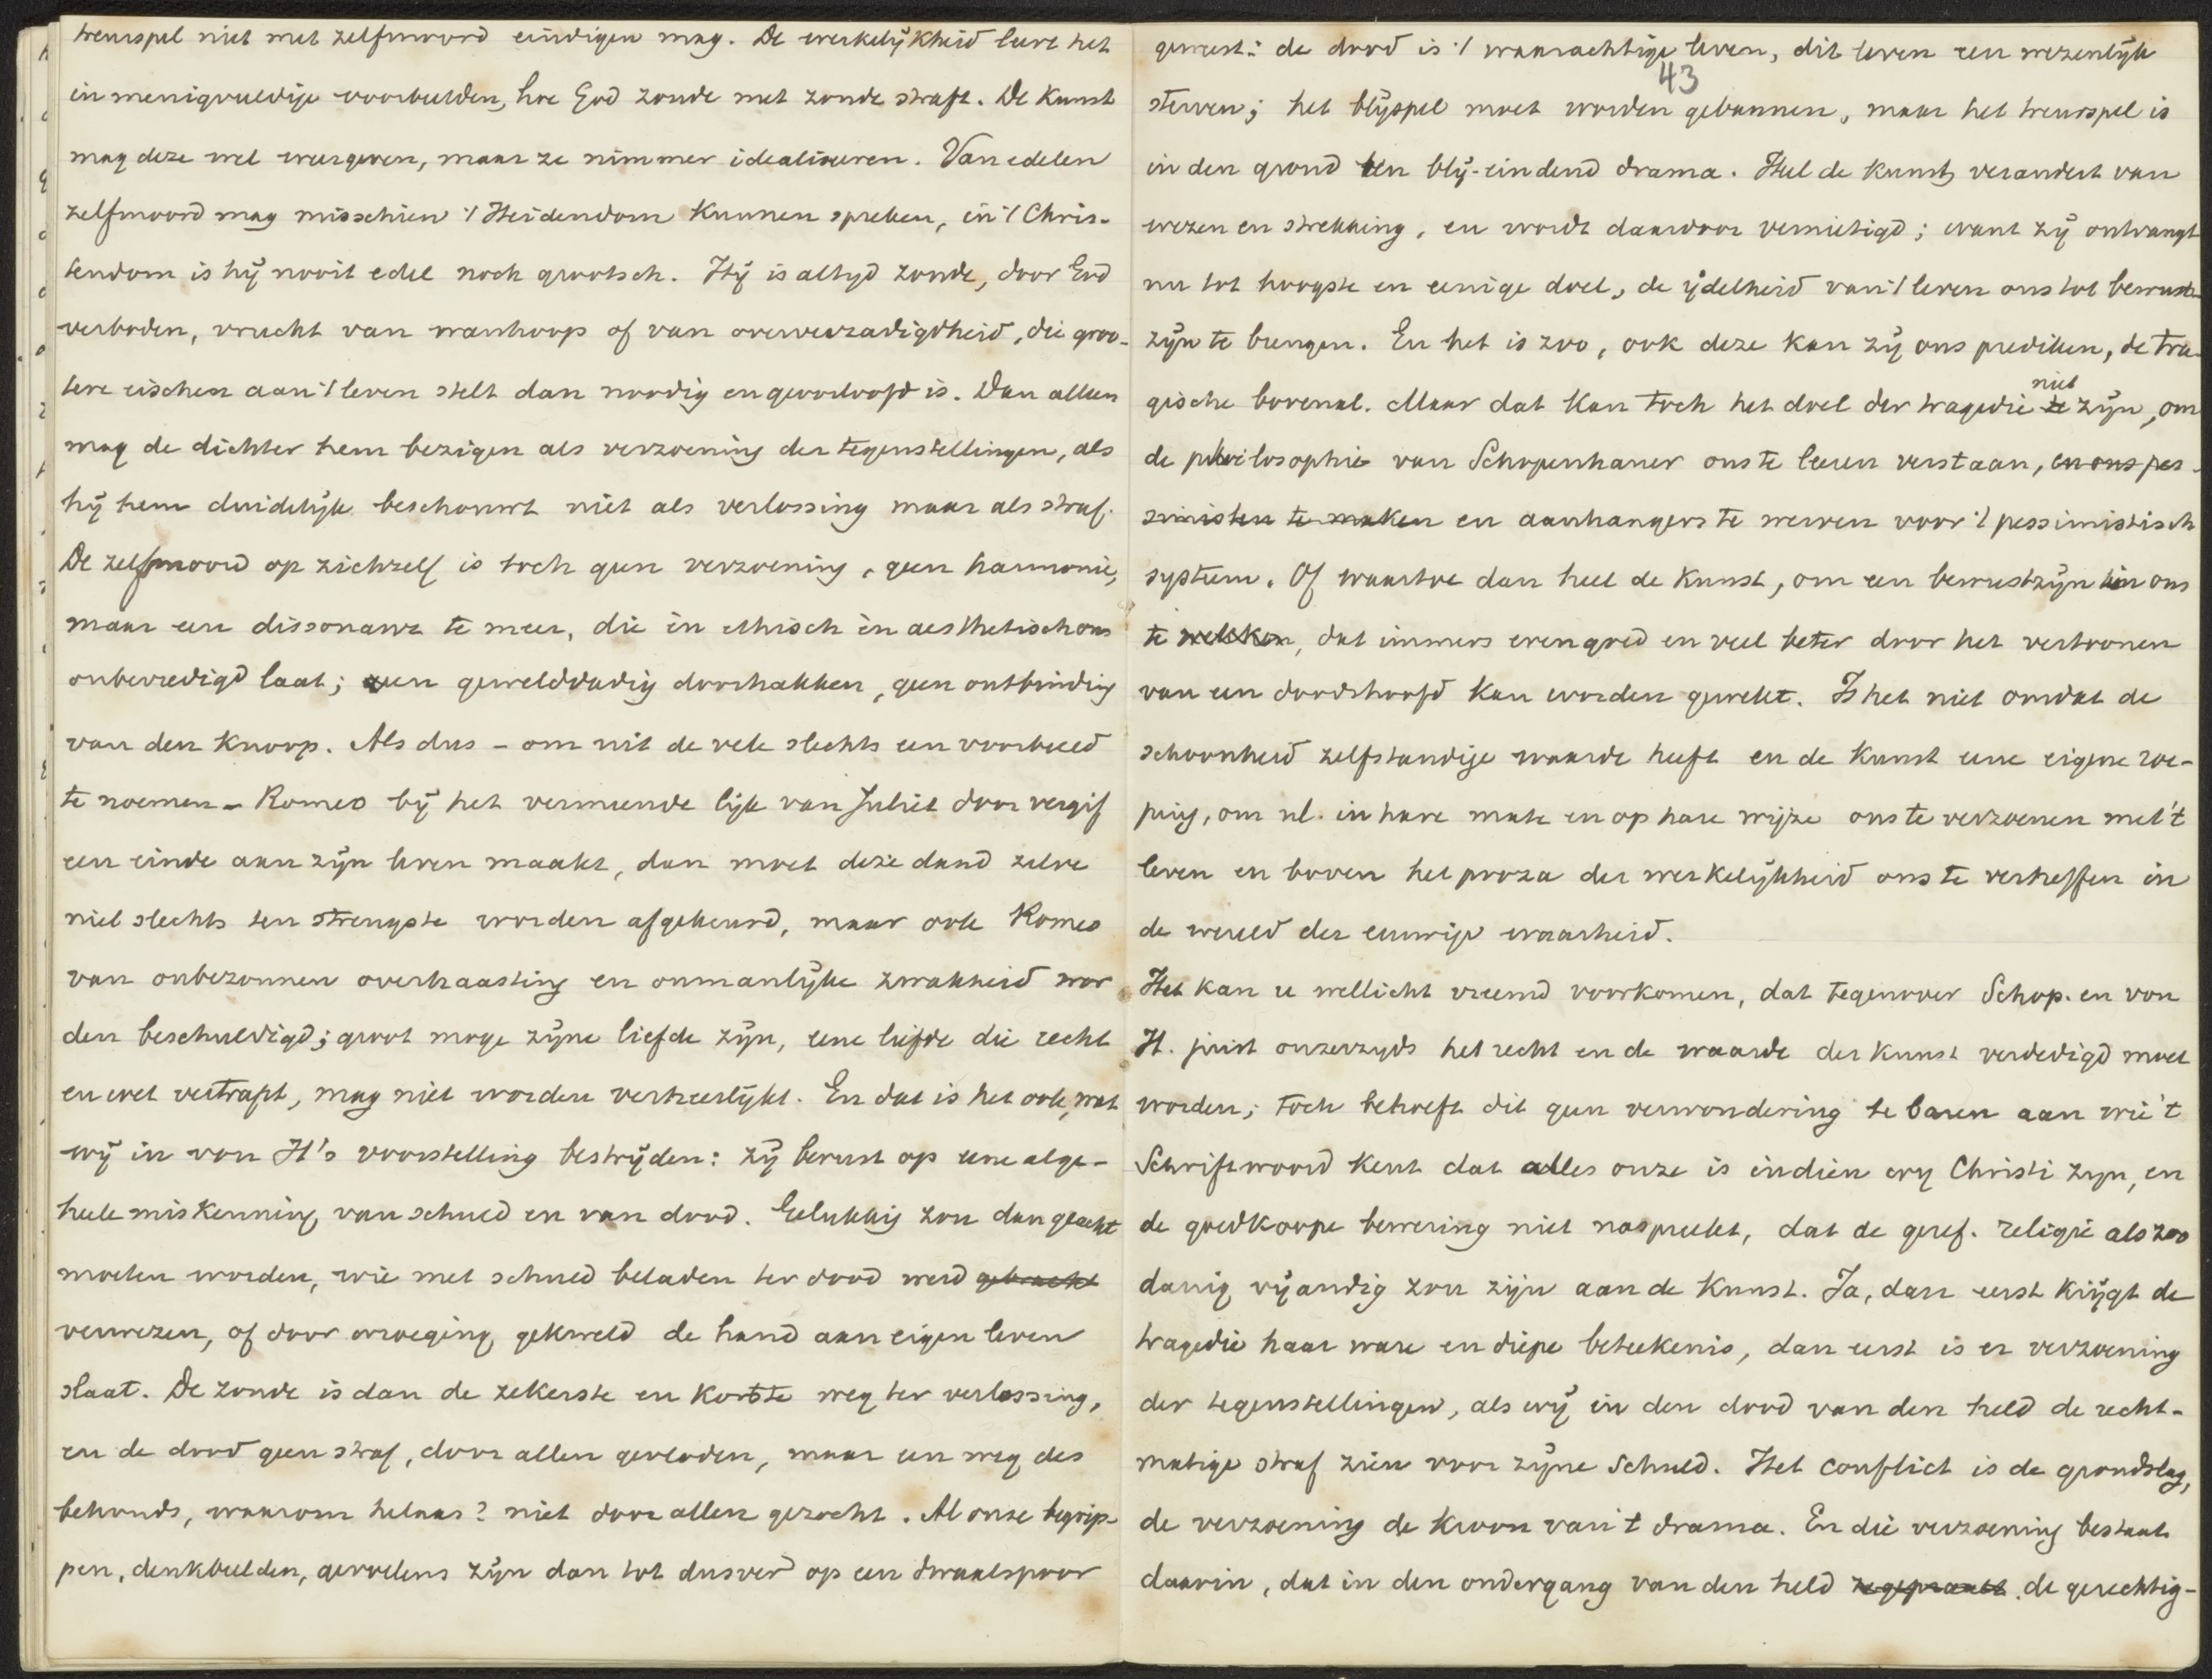 treurspel niet met zelfmoord eindigen mag. De werkelijkheid leert het
in menigvuldige voorbeelden, hoe God zonde met zonde straft. De kunst
mag deze wel weergeven, maar ze nimmer idealiseeren. Van edelen
zelfmoord mag misschien 't Heidendom kunnen spreken, in 't Chris-
tendom is hij nooit edel noch grootsch. Hij is altijd zonde, door God
verboden, vrucht van wanhoop of van oververzadigdheid, die groo-
tere eischen aan 't leven stelt dan noodig en geoorloofd is. Dan alleen
mag de dichter hem bezigen als verzoening der tegenstellingen, als
hij hem duidelijk beschouwt niet als verlossing maar als straf.
De zelfmoord op zichzelf is toch geen verzoening, geen harmonie,
maar een dissonant te meer, die én ethisch én aesthetisch ons
onbevredigd laat; een gewelddadig doorhakken, geen ontbinding
van den knoop. Als dus – om uit de vele slechts een voorbeeld
te noemen – Romeo bij het vermeende lijk van Juliet door vergif
een einde aan zijn leven maakt, dan moet deze daad zelve
niet slechts ten strengste worden afgekeurd, maar ook Romeo
van onbezonnen overhaasting en onmanlijke zwakheid wor
den beschuldigd; groot moge zijne liefde zijn, eene liefde die recht
en wet vertrapt, mag niet worden verheerlijkt. En dat is het ook, wat
wij in von H's voorstelling bestrijden: zij berust op eene alge-
heele miskenning van schuld en van dood. Gelukkig zou dan geacht
moeten worden, wie met schuld beladen ter dood werd gebracht
verwezen, of door wroeging gekweld de hand aan eigen leven
slaat. De zonde is dan de zekerste en kortste weg ter verlossing,
en de dood geen straf, door allen gevloden, maar een weg des
behouds, waarom helaas? niet door allen gezocht. Al onze begrip-
pen, denkbeelden, gevoelens zijn dan tot dusver op een dwaalspoor
43
geweest: de dood is 't waarachtige leven, dit leven een wezenlijk
sterven; het blijspel moet worden gebannen, maar het treurspel is
in den grond een blij-eindend drama. Heel de kunst verandert van
wezen en strekking, en wordt daardoor vernietigd; want zij ontvangt
nu tot hoogste en eenige doel, de ijdelheid van 't leven ons tot bewust-
zijn te brengen. En het is zoo, ook deze kan zij ons prediken, de tra-
gische bovenal. Maar dat kan toch het doel der tragedie te niet zijn, om
de philosophie van Schopenhauer ons te leeren verstaan, en ons pes-
simisten te maken en aanhangers te werven voor 't pessimistisch
systeem. Of waartoe dan heel de kunst, om een bewustzijn in ons
te wekken, dat immers evengoed en veel beter door het vertoonen
van een doodshoofd kan worden gewekt. Is het niet omdat de
schoonheid zelfstandige waarde heeft en de kunst eene eigene roe-
ping, om nl. in hare mate en op hare wijze ons te verzoenen met 't
leven en boven het proza der werkelijkheid ons te verheffen in
de wereld der eeuwige waarheid.
Het kan u wellicht vreemd voorkomen, dat tegenover Schop. en von
H. juist onzerzijds het recht en de waarde der kunst verdedigd moet
worden; toch behoeft dit geen verwondering te baren aan wie 't
Schriftwoord kent dat alles onze is indien wij Christi zijn, en
de goedkoope bewering niet naspreekt, dat de geref. religie als zoo
danig vijandig zou zijn aan de kunst. Ja, dan eerst krijgt de
tragedie haar ware en diepe beteekenis, dan eerst is er verzoening
der tegenstellingen, als wij in den dood van den held de recht-
matige straf zien voor zijne schuld. Het conflict is de grondslag,
de verzoening de kroon van 't drama. En die verzoening bestaat
daarin, dat in den ondergang van den held zegepraalt de gerechtig-